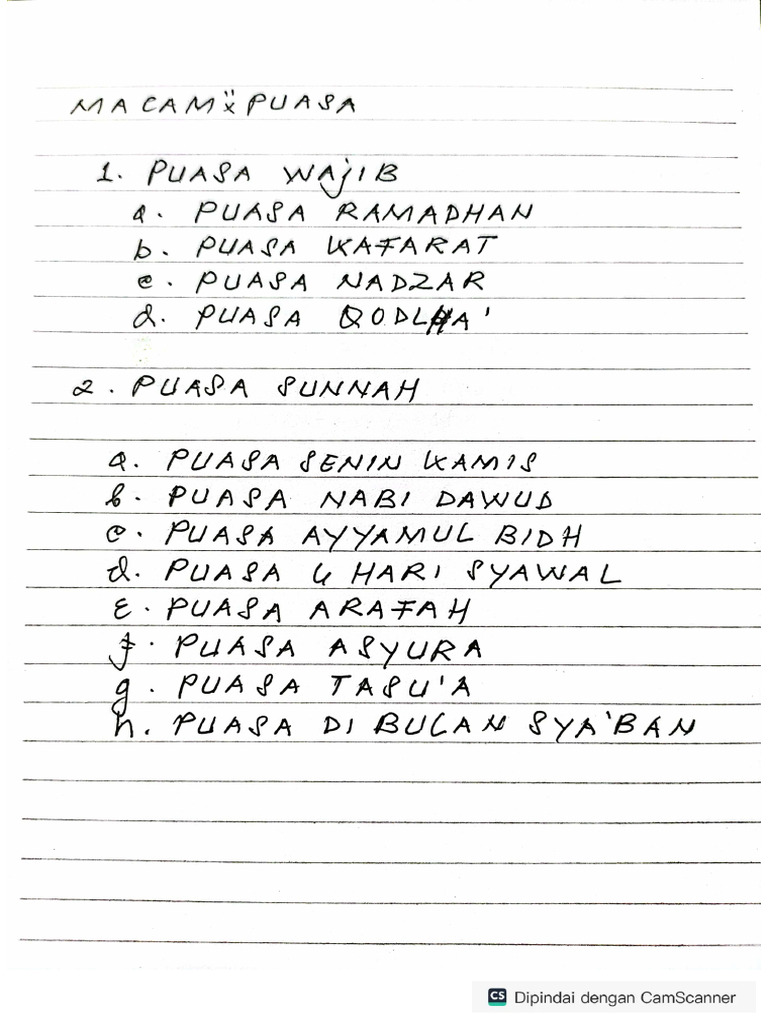 MACAM" PUASA
1. PUASA WAJIB
a. PUASA RAMADHAN
b. PUASA KAFARAT
c. PUASA NADZAR
d. PUASA QODLHA'
2. PUASA SUNNAH
a. PUASA SENIN KAMIS
b. PUASA NABI DAWUD
c. PUASA AYYAMUL BIDH
d. PUASA 6 HARI SYAWAL
E. PUASA ARAFAH
f. PUASA ASYURA
g. PUASA TASU'A
h. PUASA DI BULAN SYA'BAN
CS Dipindai dengan CamScanner